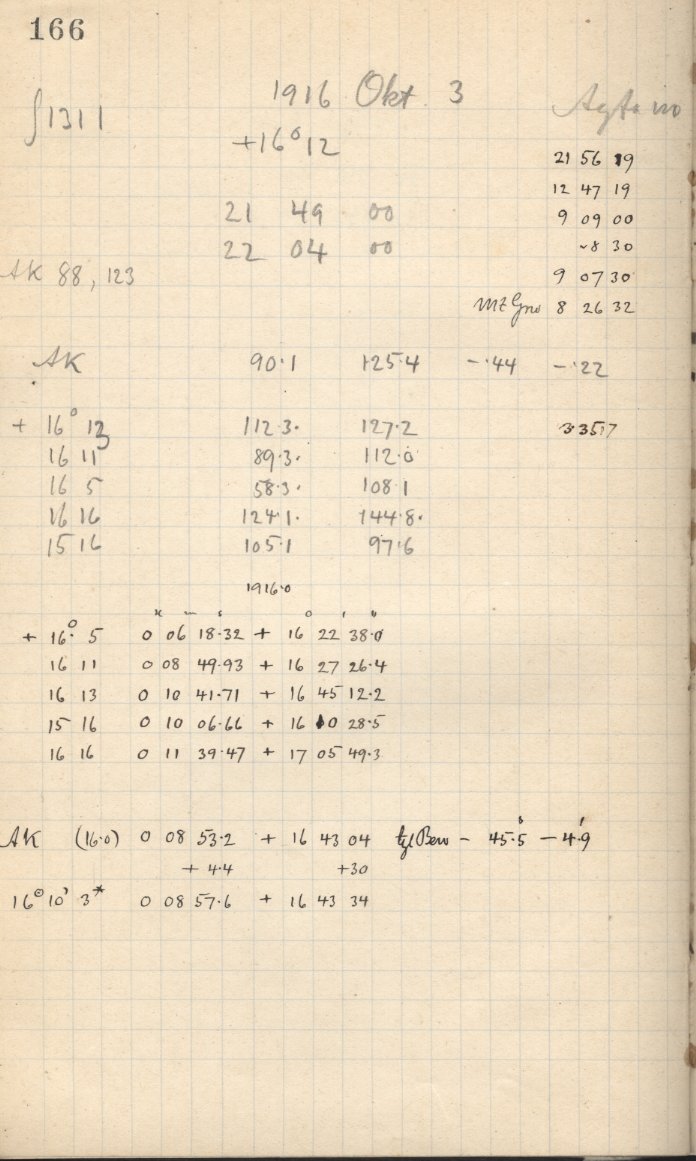 166
1916 Okt. 3
1311
+16° 12
21 56 19
12 47 19
21 49 00
9 09 00
22 04 00
-8 30
AK 88, 123
9 07 30
MZ 8 26 32
AK 90.1 125.4 -.44 -.22
+ 16° 13 112.3. 127.2 3.357
16 11 89.3. 112.0
16 5 58.3. 108.1
16 16 124.1. 144.8.
15 16 105.1 97.6
1916.0
h m s ° ' "
+ 16° 5 0 06 18.32 + 16 22 38.0
16 11 0 08 49.93 + 16 27 26.4
16 13 0 10 41.71 + 16 45 12.2
15 16 0 10 06.66 + 16 10 28.5
16 16 0 11 39.47 + 17 05 49.3
AK (16.0) 0 08 53.2 + 16 43 04 tgl Bew - 45.5 - 4.9
+ 4.4 +30
16° 10' 3* 0 08 57.6 + 16 43 34